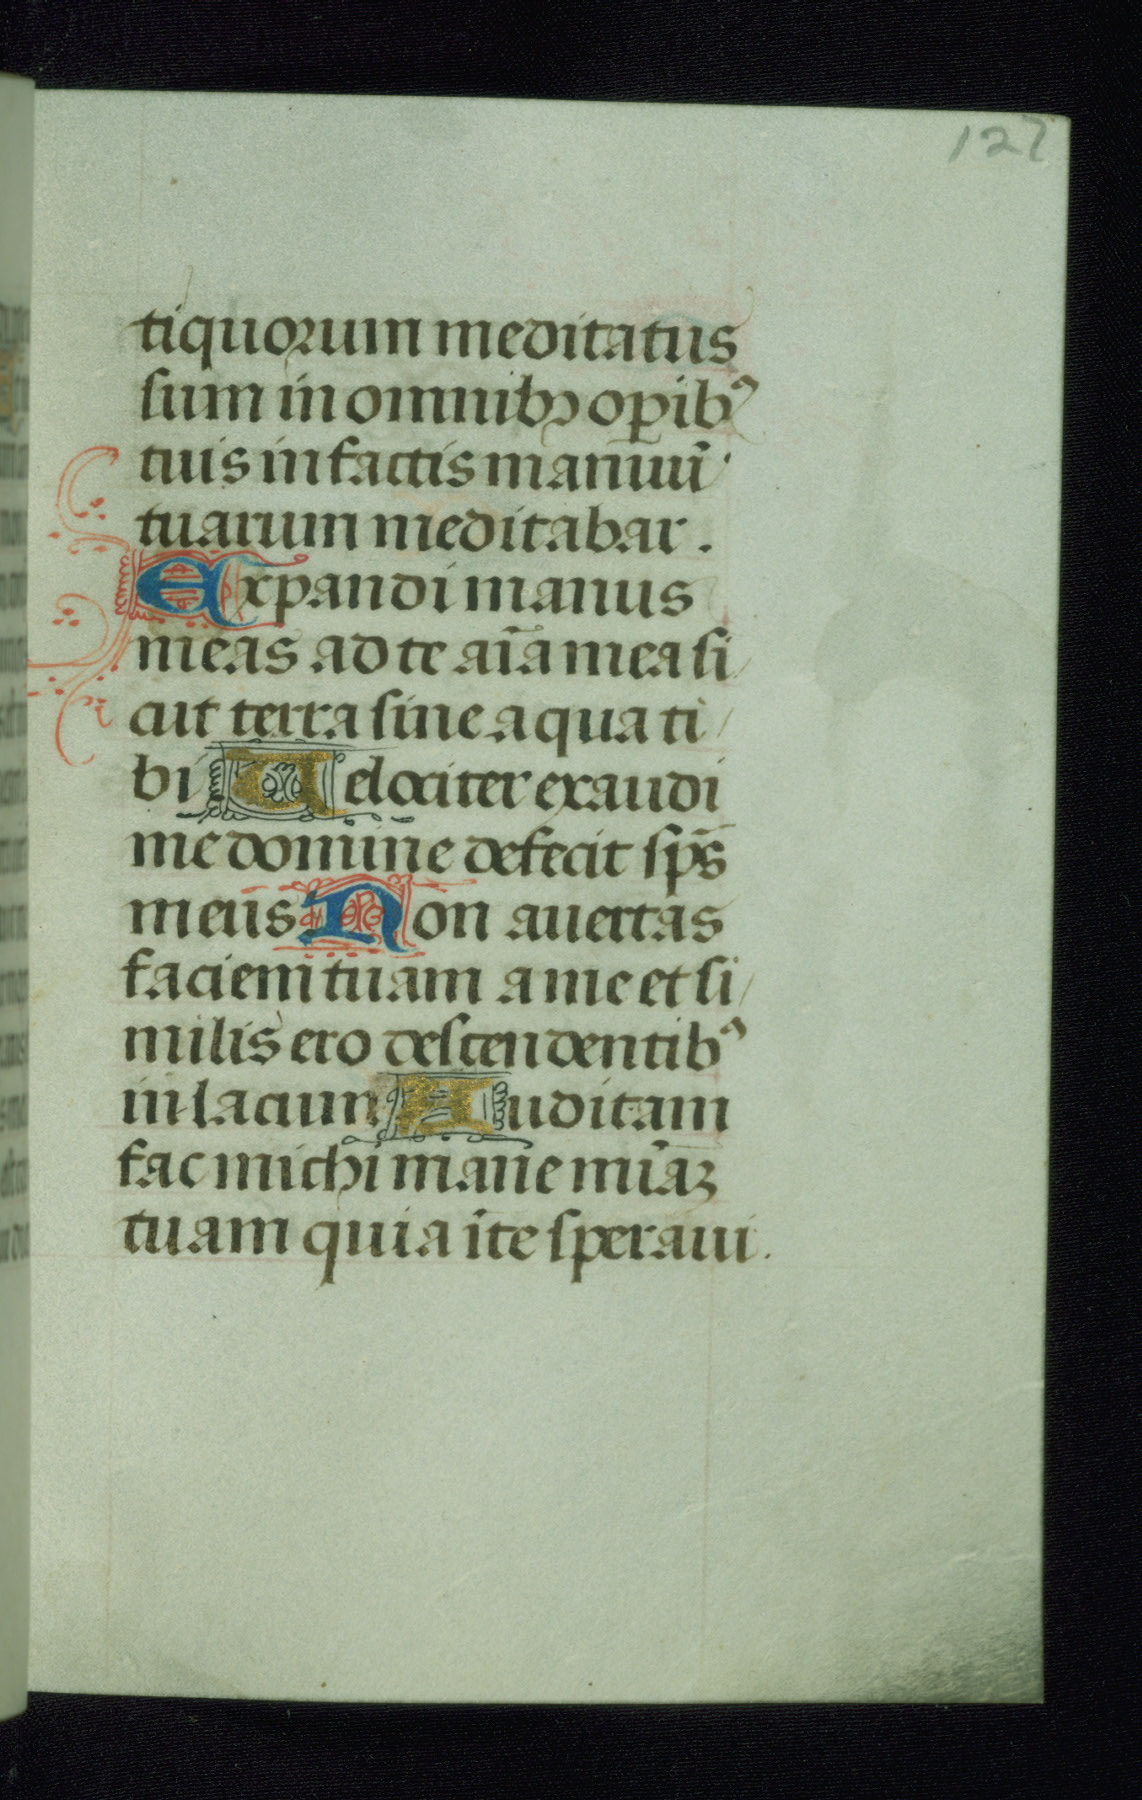 127
tiquorum meditatus
sum in omnibꝫ oꝑibꝰ
tuis in factis manuū
tuarum meditabar.
Expandi manus
meas ad te aīa mea si
cut terra sine aqua ti
bi Velociter exaudi
me domine defecit sp̄s
meus Non auertas
faciem tuam a me et si
milis ero descendentibꝰ
in lacum Auditam
fac michi mane mīaꝫ
tuam quia ī te speraui.